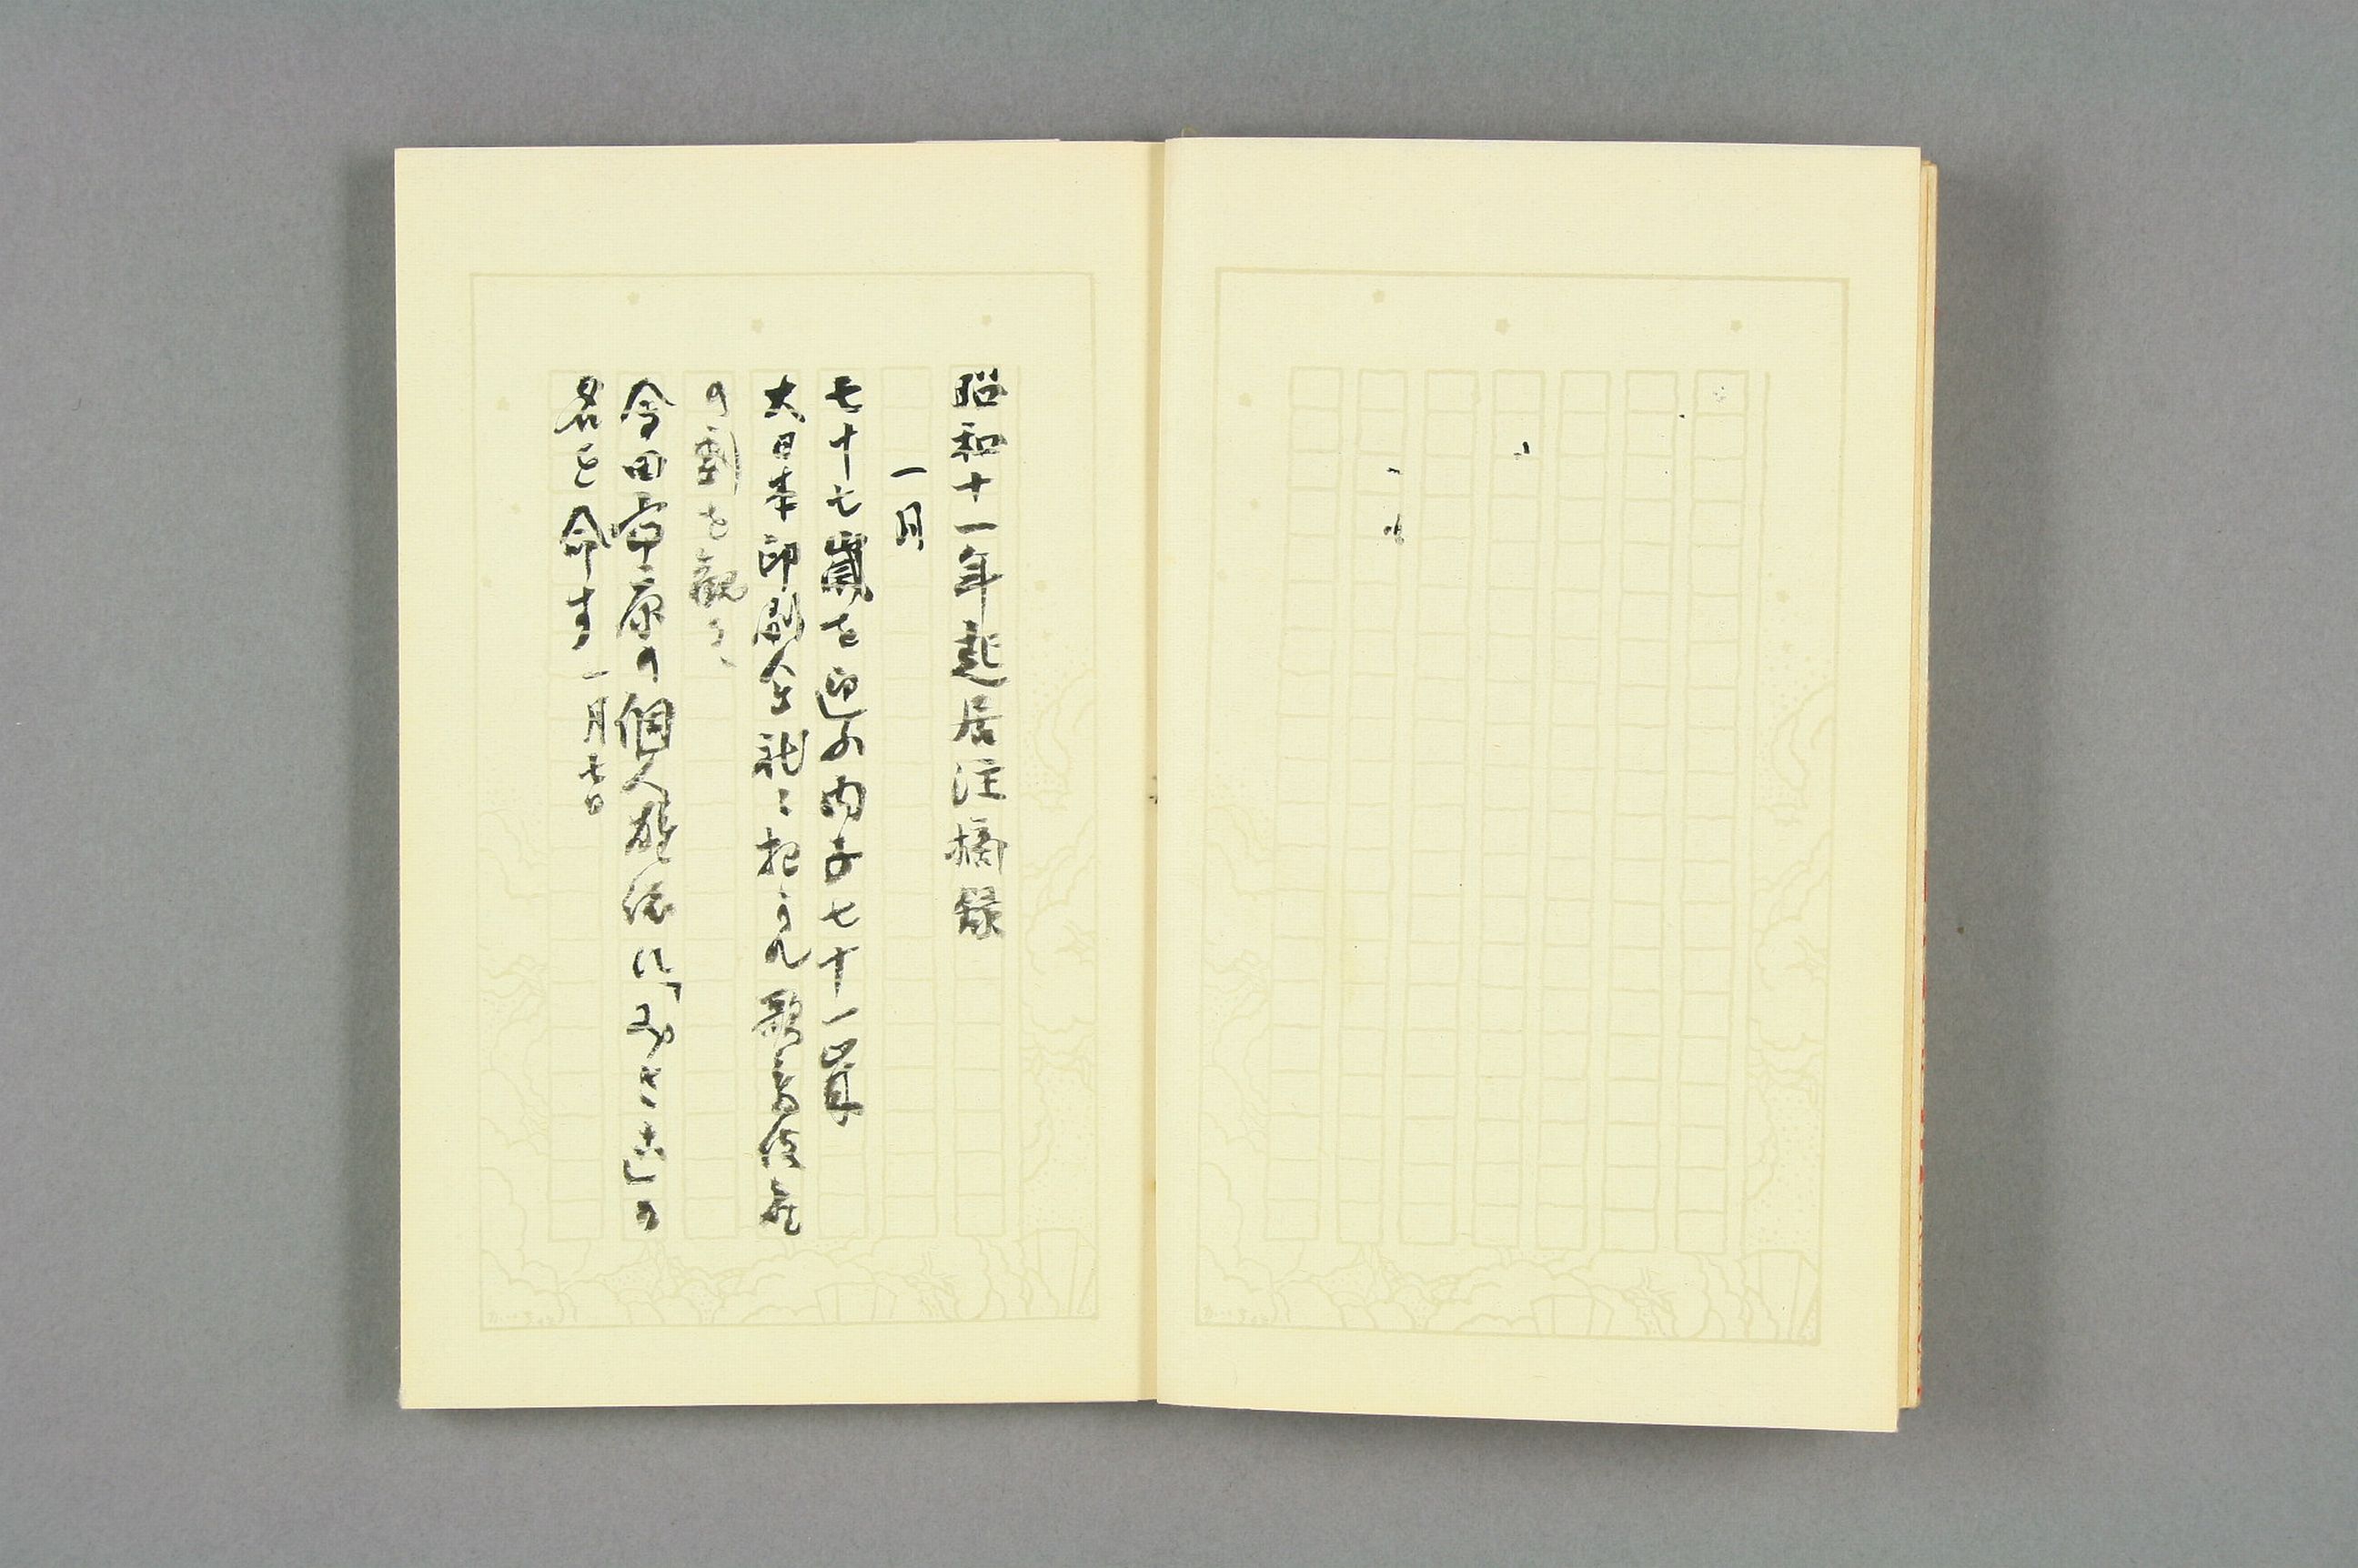 昭和十一年起居注摘録
一月
七十七歳を迎ふ内子七十一歳
大日本印刷会社に招かれ歌舞伎座
の劇を観る
今田草の個人雑誌に「みさこ」の
名を命す 一月七日